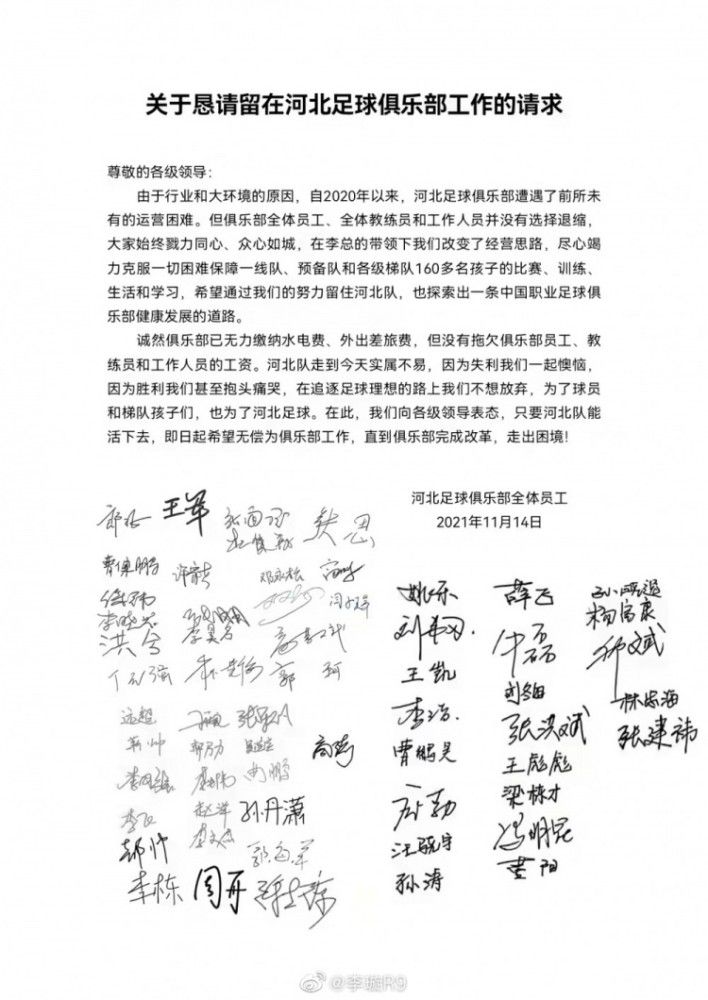 关于恳请留在河北足球俱乐部工作的请求
尊敬的各级领导：
由于行业和大环境的原因，自2020年以来，河北足球俱乐部遭遇了前所未
有的运营困难。但俱乐部全体员工、全体教练员和工作人员并没有选择退缩，
大家始终戮力同心、众心如城，在李总的带领下我们改变了经营思路，尽心竭
力克服一切困难保障一线队、预备队和各级梯队160多名孩子的比赛、训练、
生活和学习，希望通过我们的努力留住河北队，也探索出一条中国职业足球俱
乐部健康发展的道路。
诚然俱乐部已无力缴纳水电费、外出差旅费，但没有拖欠俱乐部员工、教
练员和工作人员的工资。河北队走到今天实属不易，因为失利我们一起懊恼，
因为胜利我们甚至抱头痛哭，在追逐足球理想的路上我们不想放弃，为了球员
和梯队孩子们，也为了河北足球。在此，我们向各级领导表态，只要河北队能
活下去，即日起希望无偿为俱乐部工作，直到俱乐部完成改革，走出困境！
河北足球俱乐部全体员工
2021年11月14日
王军
姚乐 薛飞
杨富康
王凯
刘旭
林志海
李浩 张洪斌 张建祎
远超
高嵩
曹鹏昊 王彪彪
梁栋才
孙丹潇
汪晓宇 冯明昆
郝帅
孙涛 董阳
李栋 周开
@李璇R9